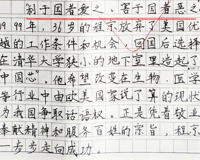 制于国者爱之,害于国者恶之
1994年,36岁的程京放弃了美国优
越的工作条件和机会,回国后选择
在清华大学,的地下室里造起了
中国芯。他希望改变在生物、医学
等行业中由欧美国家说了算的现状
为我国争取话语权。正是凭着敬业
奉献精神和服务百姓的宗旨,程京
一步步走向成功。